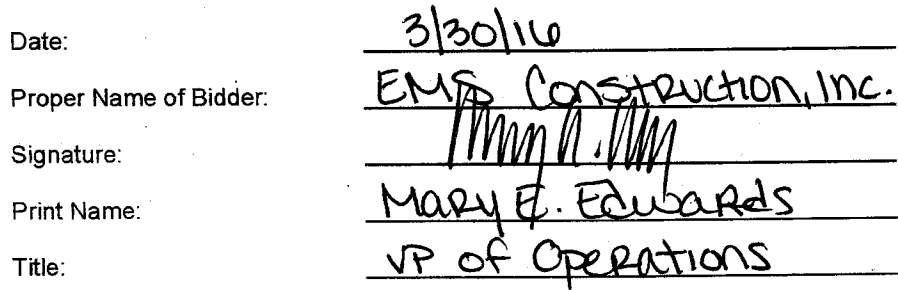 Date: 3/30/16
Proper Name of Bidder: EMS Construction, Inc.
Signature:
Print Name: Mary E. Edwards
Title: VP of Operations